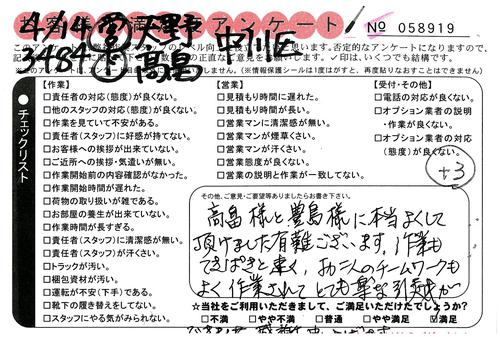 お客様満足アンケート
№ 058919
4/14 大野 中川区
3484 高畠
このアンケートは
否定的なアンケートになりますので、
の正直なご意見をお願いします。✓印は、いくつでも結構です。
(※情報保護シールは1度はがすと、再度貼りなおすことはできません)
●チェックリスト
【作業】
□責任者の対応(態度)が良くない。
□他のスタッフの対応(態度)が良くない。
□作業を見ていて不安がある。
□責任者(スタッフ)に好感が持てない。
□お客様への挨拶が出来ていない。
□ご近所への挨拶・気遣いが無い。
□作業開始前の内容確認がなかった。
□作業開始時間が遅れた。
□荷物の取り扱いが雑である。
□お部屋の養生が出来ていない。
□作業時間が長すぎる。
□責任者(スタッフ)に清潔感が無い。
□責任者(スタッフ)が汗くさい。
□トラックが汚い。
□梱包資材が汚い。
□運転が不安(下手)である。
□靴下の履き替えをしてない。
□スタッフにやる気がみられない。
【営業】
□見積もり時間に遅れた。
□見積もり時間が長い。
□営業マンに清潔感が無い。
□営業マンが煙草くさい。
□営業マンが汗くさい。
□営業態度が良くない。
□営業の説明と作業が一致してない。
【受付・その他】
□電話の対応が良くない。
□オプション業者の説明
・作業が良くない。
□オプション業者の対応
(態度)が良くない。
+3
その他、ご意見・ご要望等ありましたらお書き下さい。
高畠様と豊島様に本当よくして
頂けました有難ございます。作業も
てきぱきと速く、お二人のチームワークも
よく作業されてとても楽な引越が
☆当社をご利用いただきまして、ご満足いただけたでしょうか?
□不満 □やや不満 □普通 □やや満足 ☑満足